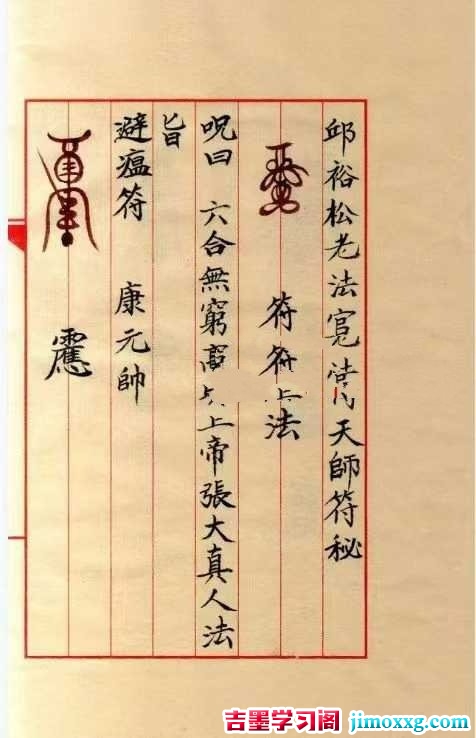 邱裕松老法寃天師符秘
符法
呪曰 六合無窮上帝張大真人法
旨
避瘟符 康元帥
靀
吉墨学习阁 jimoxxg.com